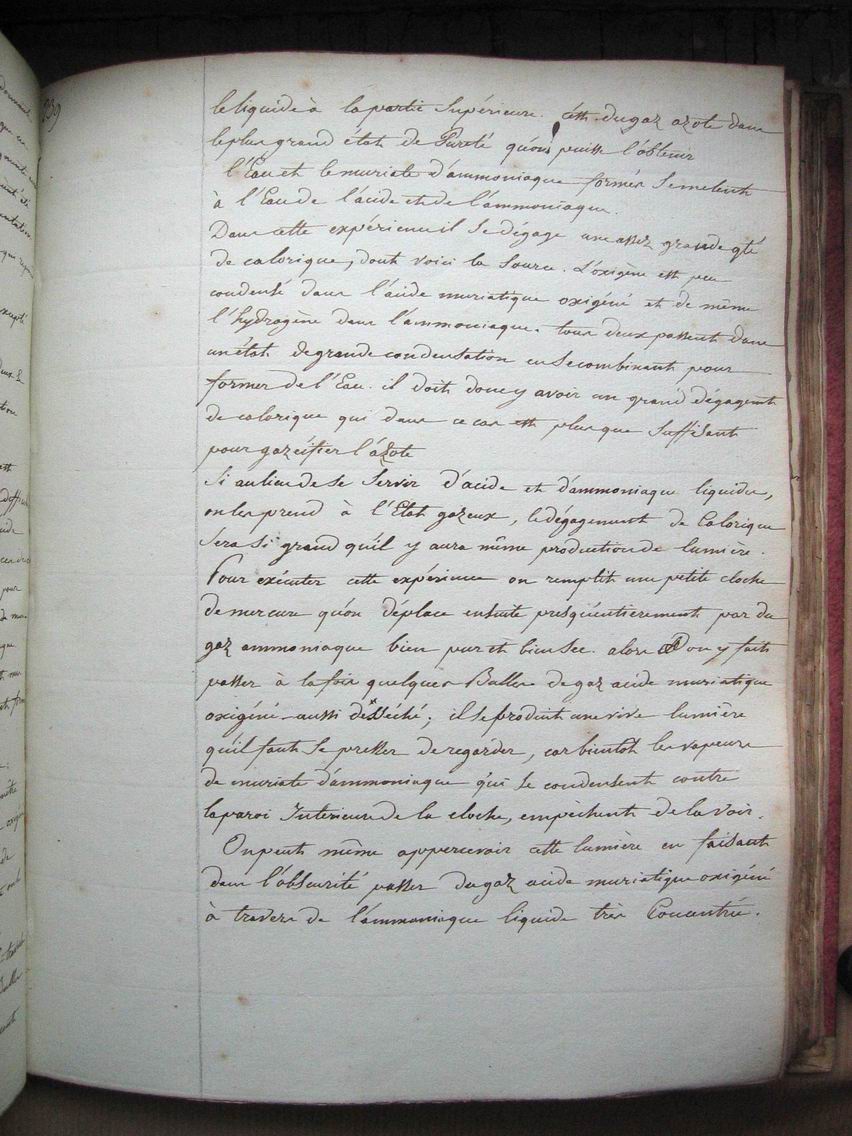 239
le liquide à la partie Supérieure. c'est du gaz azote dans
le plus grand état de Pureté qu'on puisse l'obtenir
l'Eau et le muriate d'ammoniaque formés Se melent
à l'Eau de l'acide et de l'ammoniaque.
Dans cette expérience il Se dégage une assez grande qté
de calorique, dont voici la Source. L'oxigène est peu
condensé dans l'acide muriatique oxigéné et de même
l'hydrogène dans l'ammoniaque. tous deux passent dans
un état de grande condensation en Se combinant pour
former de l'Eau. il doit donc y avoir un grand dégagemt
de calorique qui dans ce cas est plus que Suffisant
pour gazéifier l'azote
Si au lieu de Se Servir d'acide et d'ammoniaque liquides,
on les prend à l'Etat gazeux, le dégagement de Calorique
Sera Si grand qu'il y aura même production de lumière.
Pour exécuter cette expérience on remplit une petite cloche
de mercure qu'on déplace ensuite presqu'entierement par du
gaz ammoniaque bien pur et bien Sec. alors on y fait
passer à la fois quelques Bulles de gaz acide muriatique
oxigéné aussi desséché; il Se produit une vive lumière
qu'il faut Se presser de regarder, car bientot les vapeurs
de muriate d'ammoniaque qui Se condensent contre
la paroi Interieure de la cloche, empêchent de la voir.
On peut même appercevoir cette lumière en faisant
dans l'obscurité passer du gaz acide muriatique oxigéné
à travers de l'ammoniaque liquide très Concentrée.